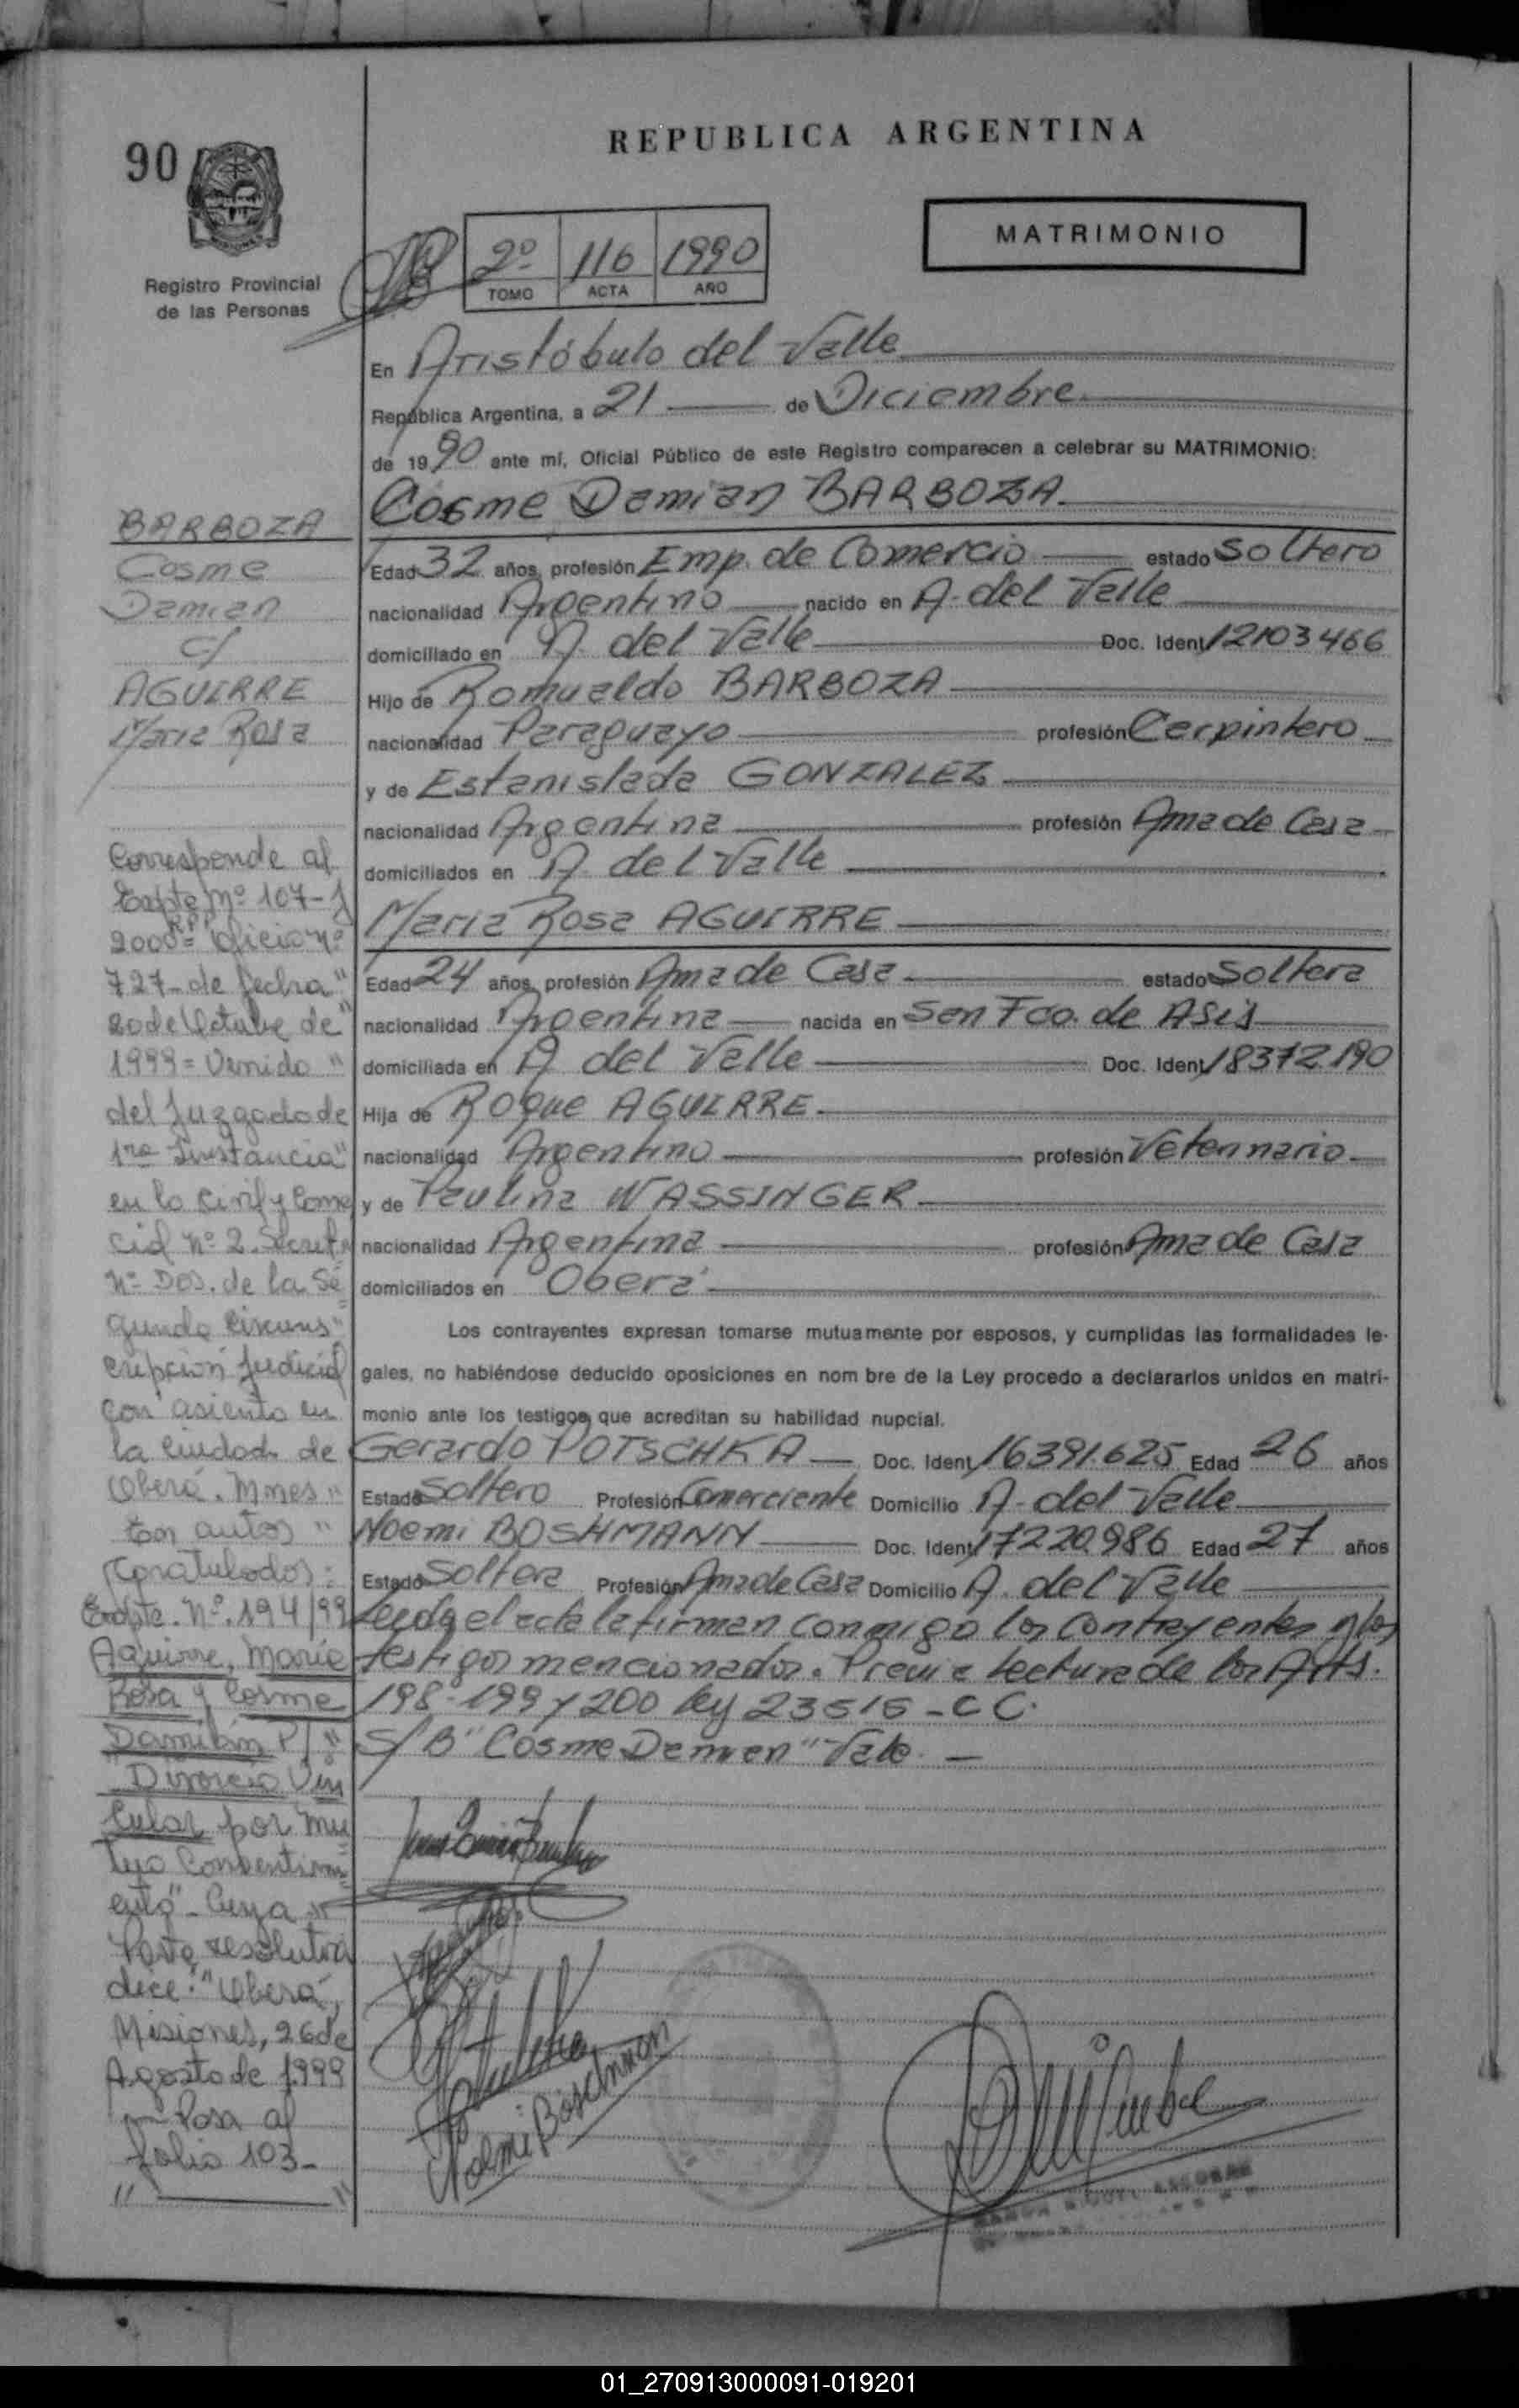 REPUBLICA ARGENTINA
90
MATRIMONIO
2º 116 1990
TOMO ACTA AÑO
Registro Provincial
de las Personas
En Aristóbulo del Valle
República Argentina, a 21 de Diciembre
de 1990 ante mí, Oficial Público de este Registro comparecen a celebrar su MATRIMONIO:
Cosme Damian BARBOZA
Edad 32 años, profesión Emp. de Comercio estado Soltero
nacionalidad Argentino nacido en A. del Valle
domiciliado en A. del Valle Doc. Ident 12103466
Hijo de Romualdo BARBOZA
nacionalidad Paraguayo profesión Carpintero
y de Estanislada GONZALEZ
nacionalidad Argentina profesión Ama de Casa
domiciliados en A. del Valle
Maria Rosa AGUIRRE
Edad 24 años, profesión Ama de Casa estado Soltera
nacionalidad Argentina nacida en San Fco. de Asis
domiciliada en A. del Valle Doc. Ident 18372.190
Hija de Roque AGUIRRE
nacionalidad Argentino profesión Veterinario
y de Paulina WASSINGER
nacionalidad Argentina profesión Ama de Casa
domiciliados en Oberá
Los contrayentes expresan tomarse mutuamente por esposos, y cumplidas las formalidades le-
gales, no habiéndose deducido oposiciones en nom bre de la Ley procedo a declararlos unidos en matri-
monio ante los testigos que acreditan su habilidad nupcial.
Gerardo POTSCHKA Doc. Ident 16391.625 Edad 26 años
Estado Soltero Profesión Comerciante Domicilio A. del Valle
Noemi BOSHMANN Doc. Ident 17220.986 Edad 27 años
Estado Soltera Profesión Ama de Casa Domicilio A. del Valle
Leida el acta la firman conmigo los contrayentes y los
testigos mencionados. Previa lectura de los Arts.
198-199 y 200 ley 23515 - C C.
S/B "Cosme Damian" Vale. —
Noemi Böschmann
BARBOZA
Cosme
Damian
c/
AGUIRRE
Maria Rosa
Corresponde al
Expte Nº 107-J
2000= Oficio Nº
727- de fecha "
20 de Octubre de "
1999= Venido "
del Juzgado de
1ra Instancia"
en lo Civil y Comer
cial Nº 2. Secret.
Nº Dos. de la Se
gunda Circuns"
cripción Judicial
con asiento en
la Ciudad de
Oberá. Mnes "
en autos "
Caratulados:
Expte. Nº. 194/99
Aguirre, María
Rosa y Cosme
Damián P/ "
"Divorcio Vin
cular por Mu
tuo Consentimi
ento" - Cuya "
Parte resolutiva
dice: "Oberá,
Misiones, 26 de
Agosto de 1999
Pasa al
folio 103-
" — "
01_270913000091-019201